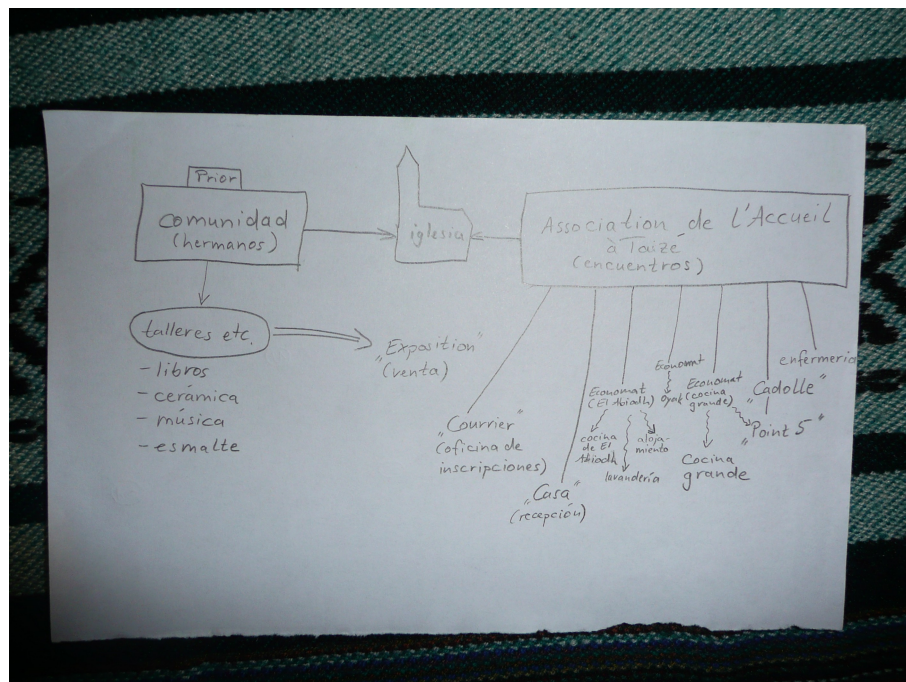 Prior
comunidad
(hermanos)
iglesia
Association de l'Accueil
à Taizé
(encuentros)
talleres etc.
- libros
- cerámica
- música
- esmalte
„Exposition"
(venta)
„Courrier"
(oficina de
inscripciones)
„Casa"
(recepción)
Economat
(El Abiodh)
cocina
de El
Abiodh
lavandería
aloja-
miento
Economat
Oyak
Economat
(cocina
grande)
Cocina
grande
„Cadolle"
„Point 5"
enfermería